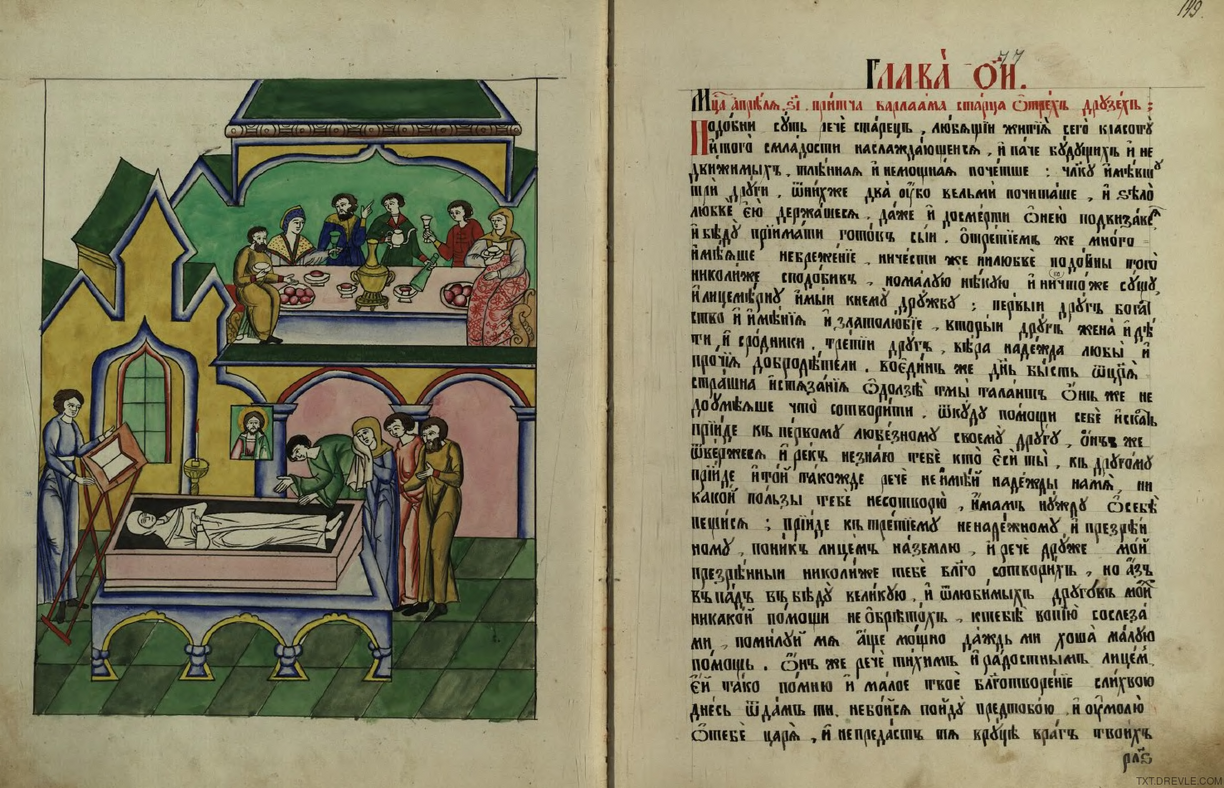 149.
77
Глава̀ о҃и.
Мц҃а а҆прѣлѧ, з҃і. при́тча варлаа́ма ста́рца ѿтре́хъ друзе́хъ :
Подо́бни су́ть речѐ ста́рецъ, лю́бѧщїи житїѧ̀ сего̀ красоту̀
и҆ того̀ сла́дости наслажда́ющеисѧ, и҆ па́че бу́дущихъ и҆ не
дви́жимыхъ, тлѣ́ннаѧ и҆ немощна́ѧ поче́тше : чл҃ку и҆мѣ́вшу
трѝ дру́ги, ѿ ни́хже два̀ ѹ҆́бо вельмѝ почита́ше, и҆ ѕѣло̀
любвѐ є҆ю̀ держа́шесѧ, да́же и҆ до сме́рти ѡ҆ не́ю подвиза́ѧсѧ
и҆ бѣду̀ прїима́ти гото́въ сы́и. ѡ҆ тре́тїемъ же мно́го
и҆мѣ́ѧше небреже́нїе, ни че́сти же ни любвѐ подо́бны того̀
николи́же сподо́бивъ, но ма́лую нѣ́кую и҆ ничто́же су́щу,
и҆ лицемѣ́рну и҆мы́и к нему̀ дру́жбу ; пе́рвыи дру́гъ бога́т
ство и҆ и҆мѣ́нїѧ и҆ златолю́бїе, вторы́и дру́гъ жена̀ и҆ дѣ́
ти, и҆ сро́дники. тре́тїи дру́гъ, вѣ́ра наде́жда любы̀ и҆
про́чїѧ добродѣ́тели. во є҆ди́нъ же дн҃ь бы́сть ѿ цр҃ѧ̀
стра́шна и҆стѧза́нїѧ ѡ҆ до́лзѣ тмы̀ тала́нтъ ѡ҆́нъ же не
доумѣ́ѧше что̀ сотвори́ти. ѿкуду по́мощи себѐ и҆ска́ти
прїи́де къ пе́рвому любе́зному своему̀ дру́гу, ѡ҆́нъ же
ѿве́ржесѧ и҆ рекъ не зна́ю тебѐ кто̀ є҆сѝ ты̀, къ друго́му
прїи́де и҆ то́й та́кожде речѐ не и҆мѣ́й наде́жды на мѧ̀, ни
како́й по́льзы тебѐ не сотворю̀, и҆́мамъ ну́жду ѡ҆ себѣ̀
пещи́сѧ ; прїи́де къ тре́тїему ненаде́жному и҆ презрѣ́н
ному, пони́къ лице́мъ на зе́млю, и҆ речѐ дру́же мо́й
презрѣ́нныи николи́же тебѐ бл҃го сотвори́хъ, но а҆́зъ
въ па́дъ въ бѣду̀ вели́кую, и҆ ѿ люби́мыхъ друго́въ мои́х
никако́й по́мощи не ѡ҆брѣто́хъ, к тебѣ̀ вопїю̀ со слеза
ми, поми́луй мѧ̀ а҆́ще мо́щно да́ждь ми хоша̀ ма́лую
по́мощь. ѡ҆́нъ же речѐ ти́химъ и҆ ра́достнымъ лице́м
є҆́й та́ко по́мню и҆ ма́лое твоѐ бл҃готворе́нїе с ли́хвою
дне́сь ѿда́мъ ти. не бо́йсѧ пойду̀ пред тобо́ю, и҆ ѹ҆молю̀
ѡ҆ тебѐ царѧ̀, и҆ не преда́стъ тѧ̀ в ру́цѣ вра́гъ твои́хъ
TXT.DREVLE.COM